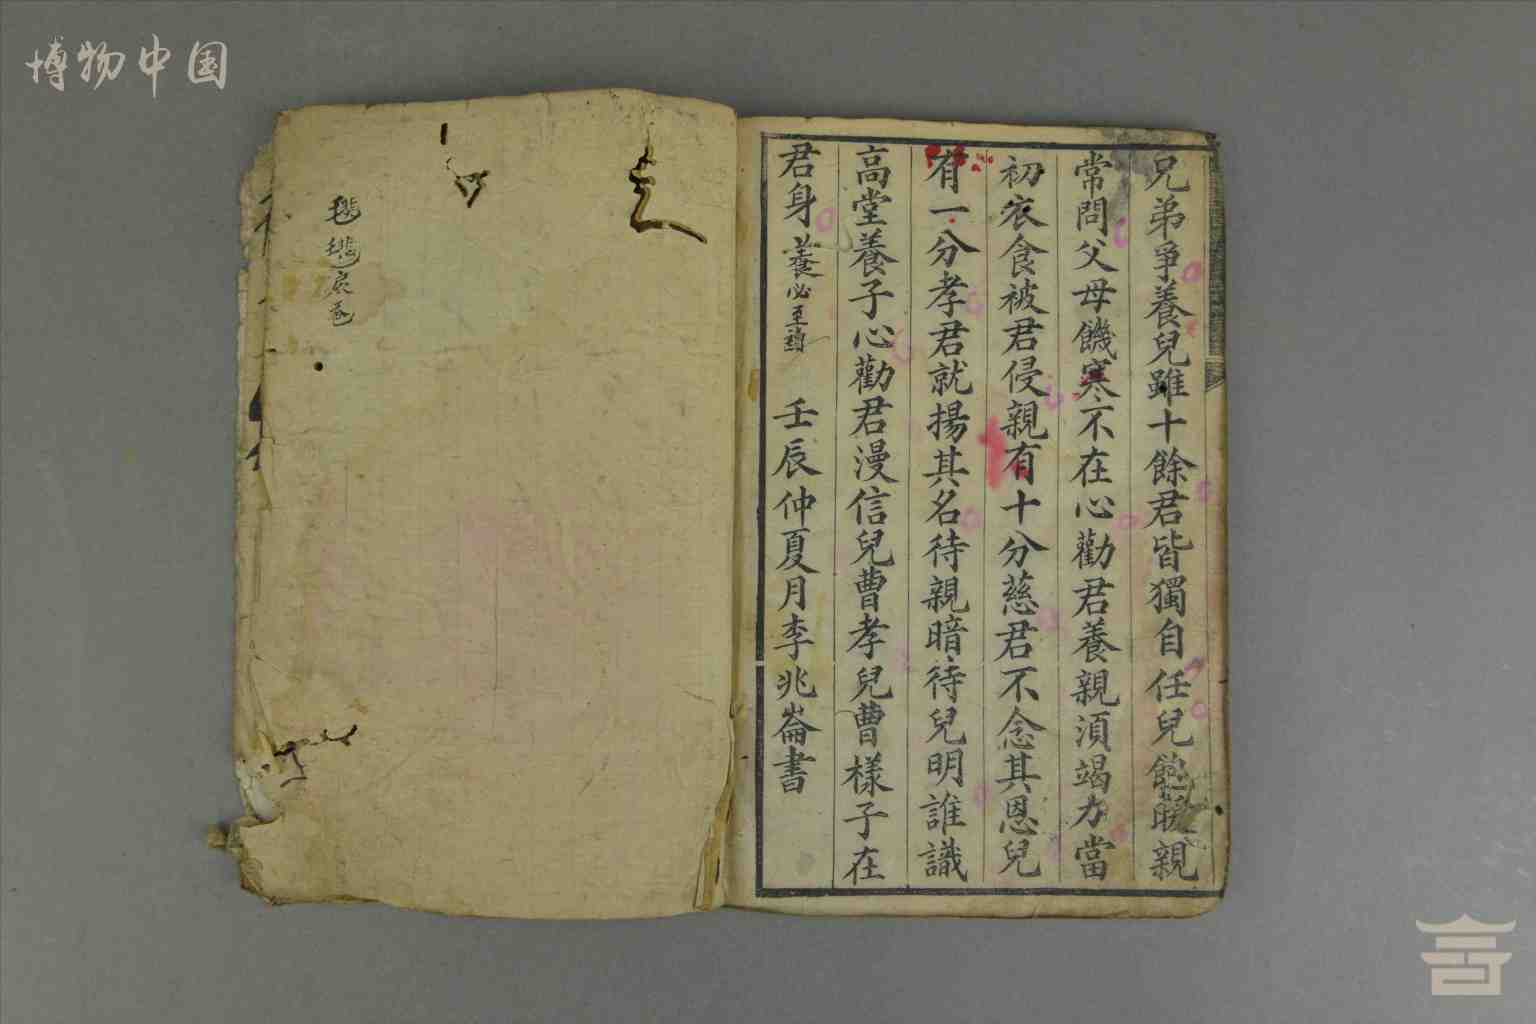 博物中国
兄弟爭養兒雖十餘君皆獨自任兒飽暖親
常問父母饑寒不在心勸君養親須竭力當
初衣食被君侵親有十分慈君不念其恩兒
有一分孝君就揚其名待親暗待兒明誰識
高堂養子心勸君漫信兒曹孝兒曹樣子在
君身 養必至讀 壬辰仲夏月李兆崙書